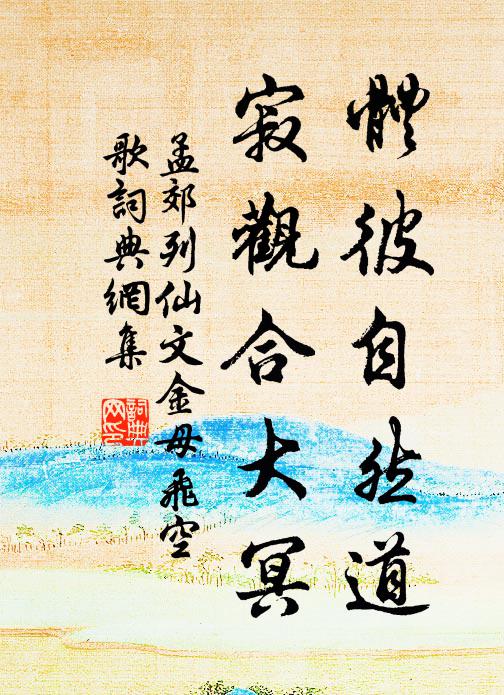 體彼自然道
寂觀合大冥
孟郊列仙文金母飛空
歌詞典網集
詞典網印